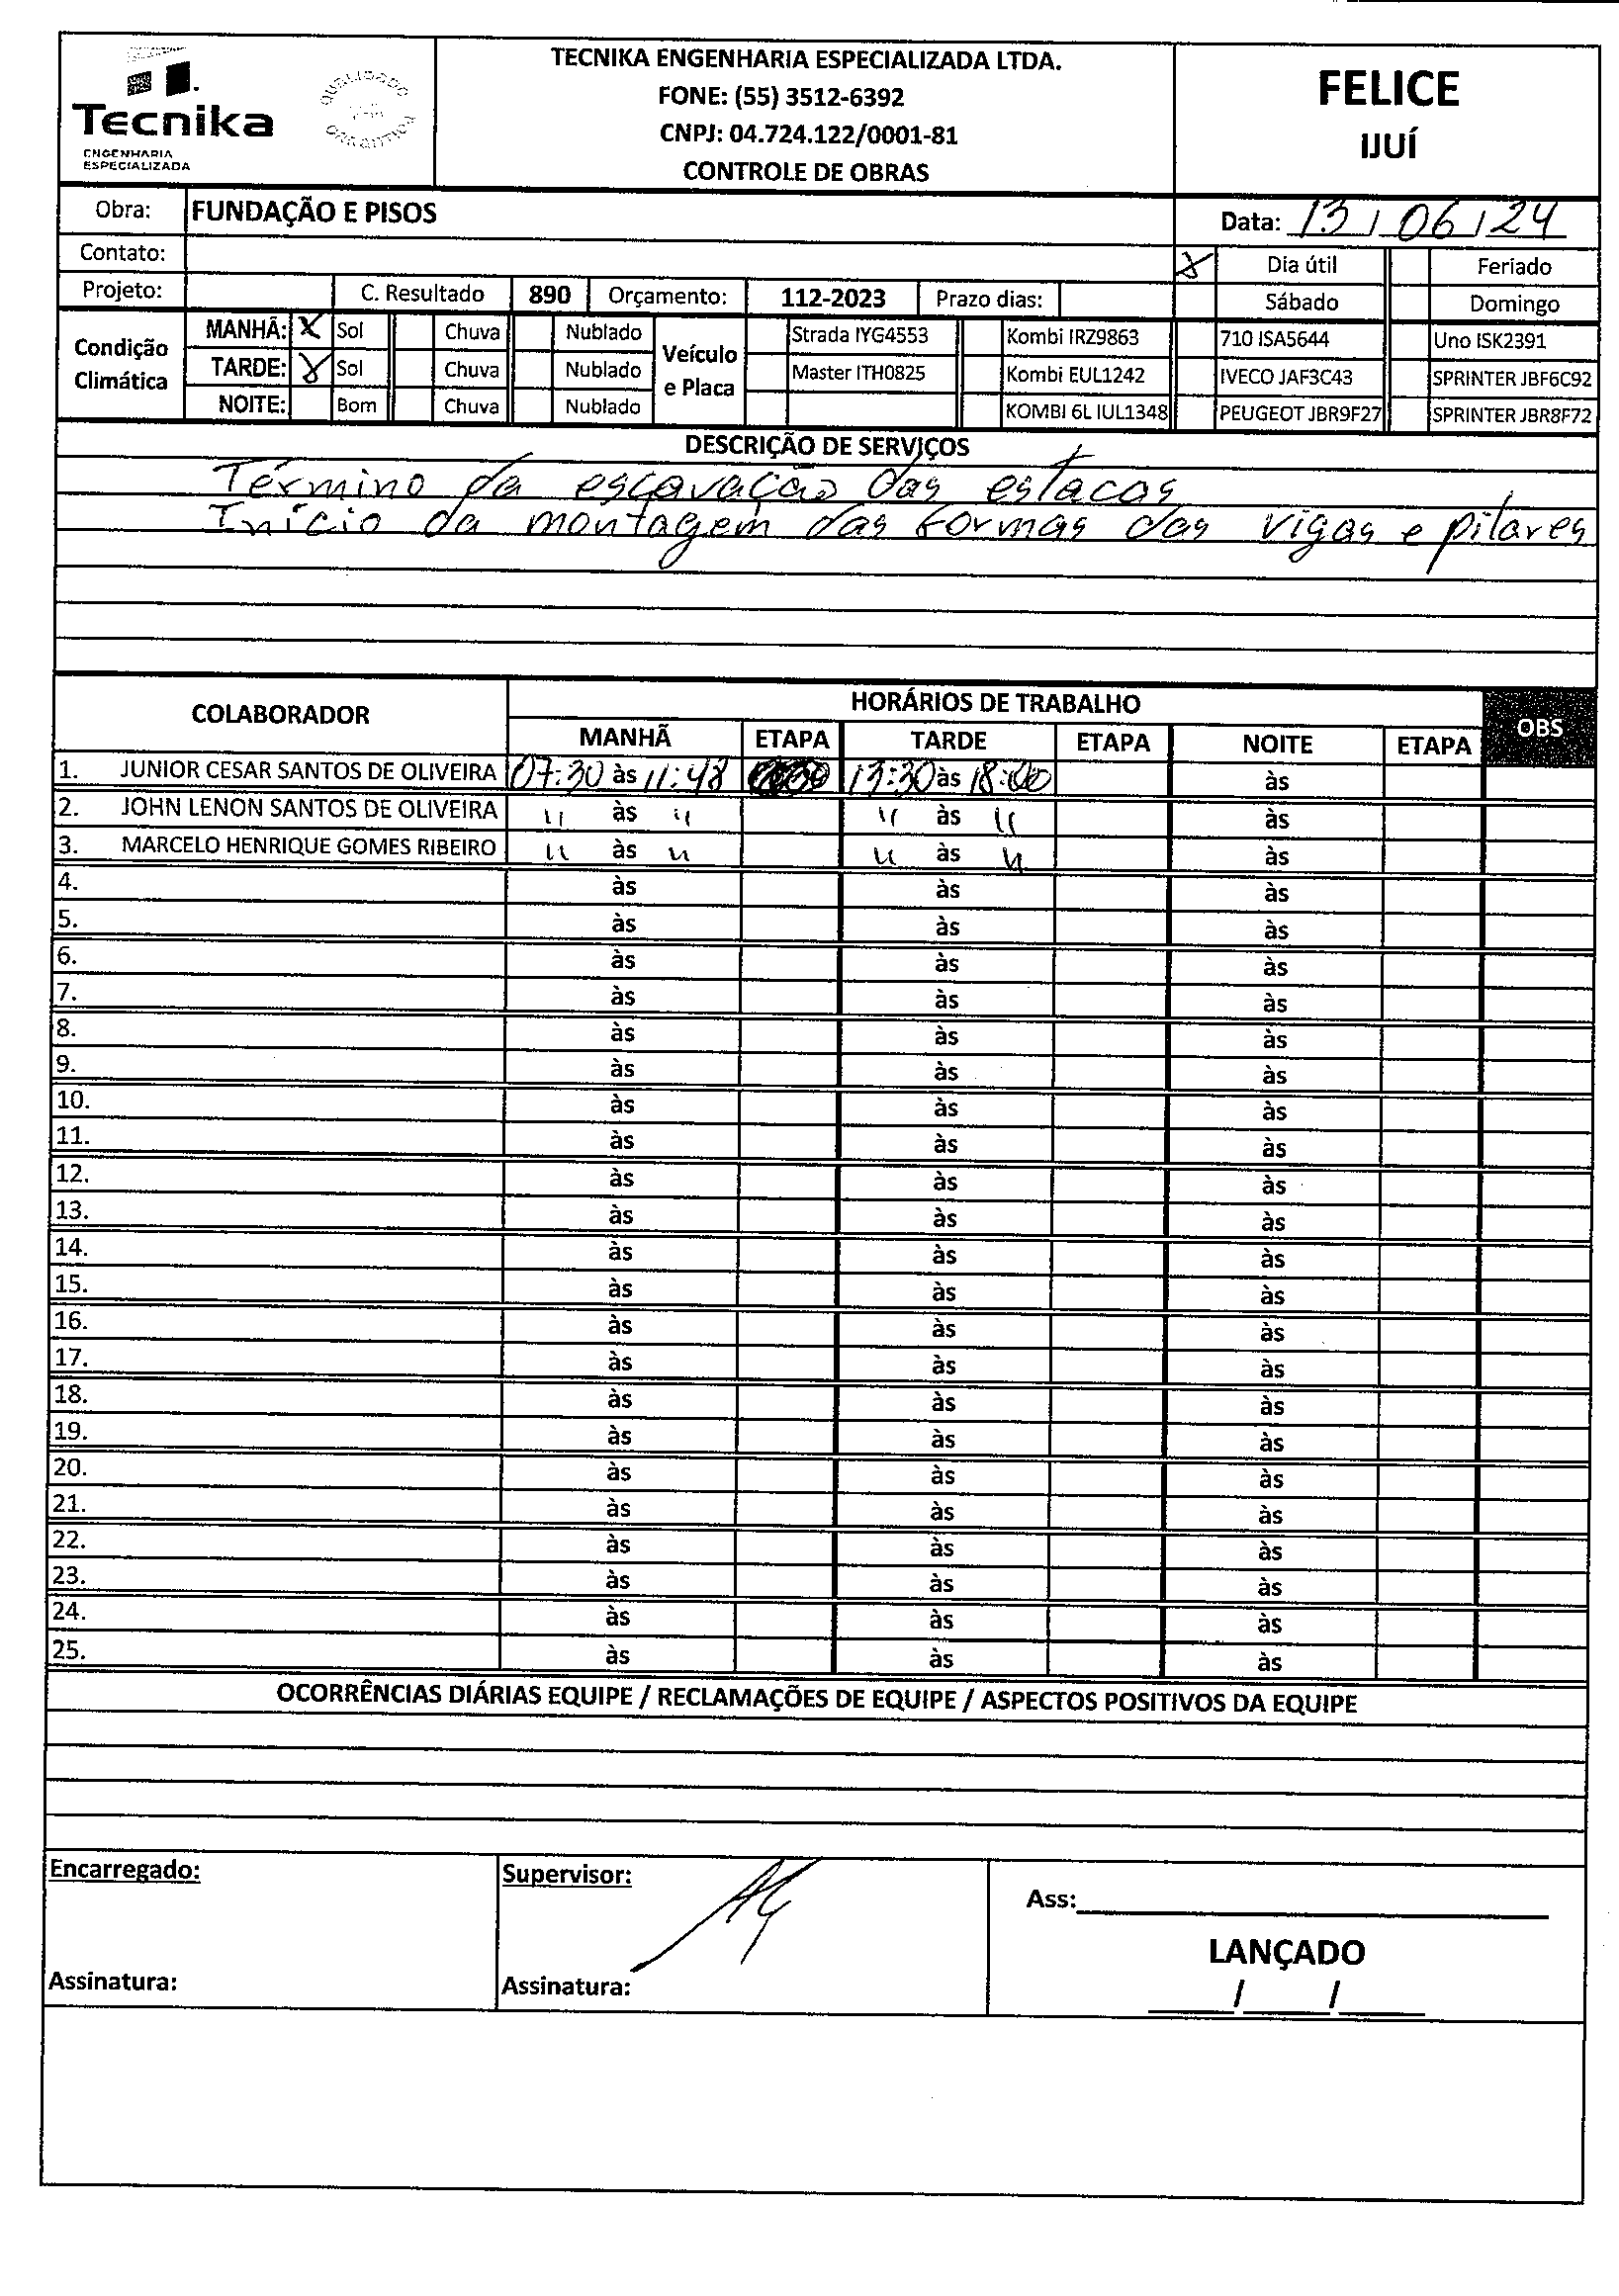 Tecnika
ENGENHARIA
ESPECIALIZADA
QUALIDADE
GARANTIDA
TECNIKA ENGENHARIA ESPECIALIZADA LTDA.
FONE: (55) 3512-6392
CNPJ: 04.724.122/0001-81
CONTROLE DE OBRAS
FELICE
IJUÍ
Obra: FUNDAÇÃO E PISOS Data: 13/06/24
Contato: X Dia útil Feriado
Projeto: C. Resultado 890 Orçamento: 112-2023 Prazo dias: Sábado Domingo
Condição Climática
MANHÃ: X Sol Chuva Nublado
TARDE: X Sol Chuva Nublado
NOITE: Bom Chuva Nublado
Veículo e Placa
Strada IYG4553 Kombi IRZ9863 710 ISA5644 Uno ISK2391
Master ITH0825 Kombi EUL1242 IVECO JAF3C43 SPRINTER JBF6C92
KOMBI 6L IUL1348 PEUGEOT JBR9F27 SPRINTER JBR8F72
DESCRIÇÃO DE SERVIÇOS
Término da escavação das estacas
Início da montagem das formas das vigas e pilares
COLABORADOR HORÁRIOS DE TRABALHO OBS
MANHÃ ETAPA TARDE ETAPA NOITE ETAPA
1. JUNIOR CESAR SANTOS DE OLIVEIRA 07:30 às 11:48 13:30 às 18:00 às
2. JOHN LENON SANTOS DE OLIVEIRA " às " " às " às
3. MARCELO HENRIQUE GOMES RIBEIRO " às " " às " às
4. às às às
5. às às às
6. às às às
7. às às às
8. às às às
9. às às às
10. às às às
11. às às às
12. às às às
13. às às às
14. às às às
15. às às às
16. às às às
17. às às às
18. às às às
19. às às às
20. às às às
21. às às às
22. às às às
23. às às às
24. às às às
25. às às às
OCORRÊNCIAS DIÁRIAS EQUIPE / RECLAMAÇÕES DE EQUIPE / ASPECTOS POSITIVOS DA EQUIPE
Encarregado:
Assinatura:
Supervisor:
Assinatura:
Ass:
LANÇADO
/ /